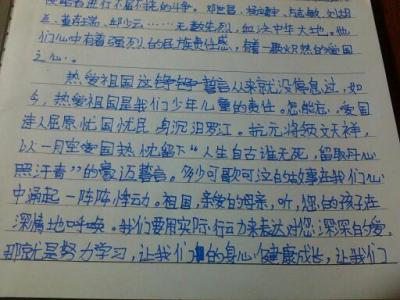 侵略者进行不屈不挠的斗争。邓世昌、杨靖宇、吉鸿昌、刘胡
兰、董存瑞、邱少云……无数先烈，血沃中华大地。他
们心中有着强烈的民族责任感，有着一颗炽热的爱国
之心。
热爱祖国这铮铮誓言从来就没停息过，如
今，热爱祖国是我们少年儿童的责任。怎能忘，爱国
诗人屈原忧国忧民身沉汨罗江。抗元将领文天祥，
以一片至爱国热忱留下“人生自古谁无死，留取丹心
照汗青”的豪迈誓言。多少可歌可泣的故事在我们心
中涌起一阵阵悸动。祖国，亲爱的母亲，听，您的孩子在
深情地呼唤。我们要用实际行动来表达对您深深的爱，
那就是努力学习，让我们的身心健康成长，让我们